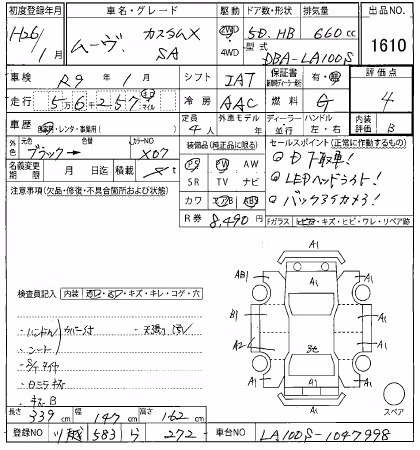 初度登録年月 車名・グレード 駆動 ドア数・形状 排気量 出品NO.
H26/1月 ムーヴ. カスタムX SA 2WD 4WD 5D. HB 660cc 1610
型式 DBA-LA100S
車検 R9年1月 シフト IAT 保証書 有・無 評価点 4
走行 5万6千257 マイル 冷房 AAC 燃料 G 内装評価 B
車歴 自家用・レンタ・事業用( ) 定員 4人 外車モデル 年 ディーラー 並行 ハンドル 左・右
外色 元色 ブラック 色替 カラーNO X07
名義変更期限 月 日迄 積載 t
装備品(純正品に限る)
PS PW AW
SR TV ナビ
カワ エアB ABS
R券 8,490円
セールスポイント(正常に作動するもの)
D下取車!
LEDヘッドライト!
バックアイカメラ!
Fガラス ヒビ・キズ・ヒビ・ワレ・リペア跡
注意事項(欠品・修復・不具合箇所および状態)
検査員記入 内装 キズ・キレ・コゲ・穴
・ハンドル
・シート
キズB
A1
AB1 A1
B1 A1
A2 A1
A1 A1
A1
スペア
長さ 339cm 幅 147cm 高さ 162cm
登録NO 583 ら 272 車台NO LA100S-1047998